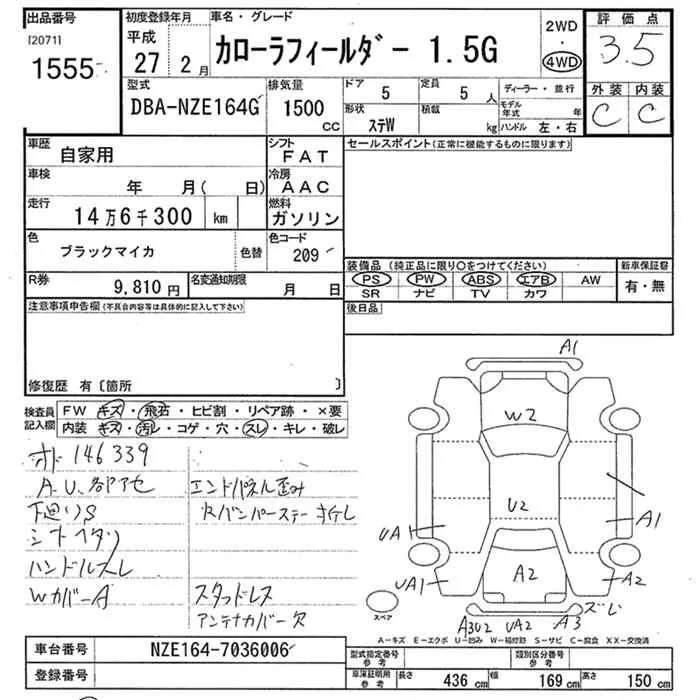 出品番号 初度登録年月 車名・グレード 評価点
[2071]
1555 平成 27 2月 カローラフィールダー 1.5G 2WD・4WD 3.5
型式 排気量 ドア 定員 ディーラー・並行 外装 内装
DBA-NZE164G 1500 CC 5 5人 モデル年式 年 C C
形状 積載
ステW kg ハンドル 左・右
車歴 自家用 シフト FAT セールスポイント(正常に機能するものに限ります)
車検 年 月( 日) 冷房 AAC
走行 14万6千300 km 燃料 ガソリン
色 ブラックマイカ 色替 色コード 209
装備品 (純正品に限り○をつけてください) 新車保証書
R券 9,810円 名変通知期限 月 日 PS PW ABS エアB AW 有・無
SR ナビ TV カワ
注意事項申告欄(不具合内容等は具体的に記入して下さい) 後日品
修復歴 有〔箇所 〕
検査員記入欄 FW キズ・飛石・ヒビ割・リペア跡・×要
内装 キズ・汚レ・コゲ・穴・スレ・キレ・破レ
オド 146339
A.U.各部アセ エンドパネル歪み
下廻りS Rバンパーステー折レ
シートヘタリ
ハンドルスレ
Wカバー A スタッドレス
アンテナカバー欠
A1
W2
U2
UA1 A1
UA1 A2 A2
ズレ
スペア A3U2 UA2 A3
A-キズ E-エクボ U-凹み W-補修跡 S-サビ C-腐食 XX-交換済
車台番号 NZE164-7036006 型式指定番号 参考 類別区分番号 参考
登録番号 車庫証明用 参考 長さ 436 cm 幅 169 cm 高さ 150 cm